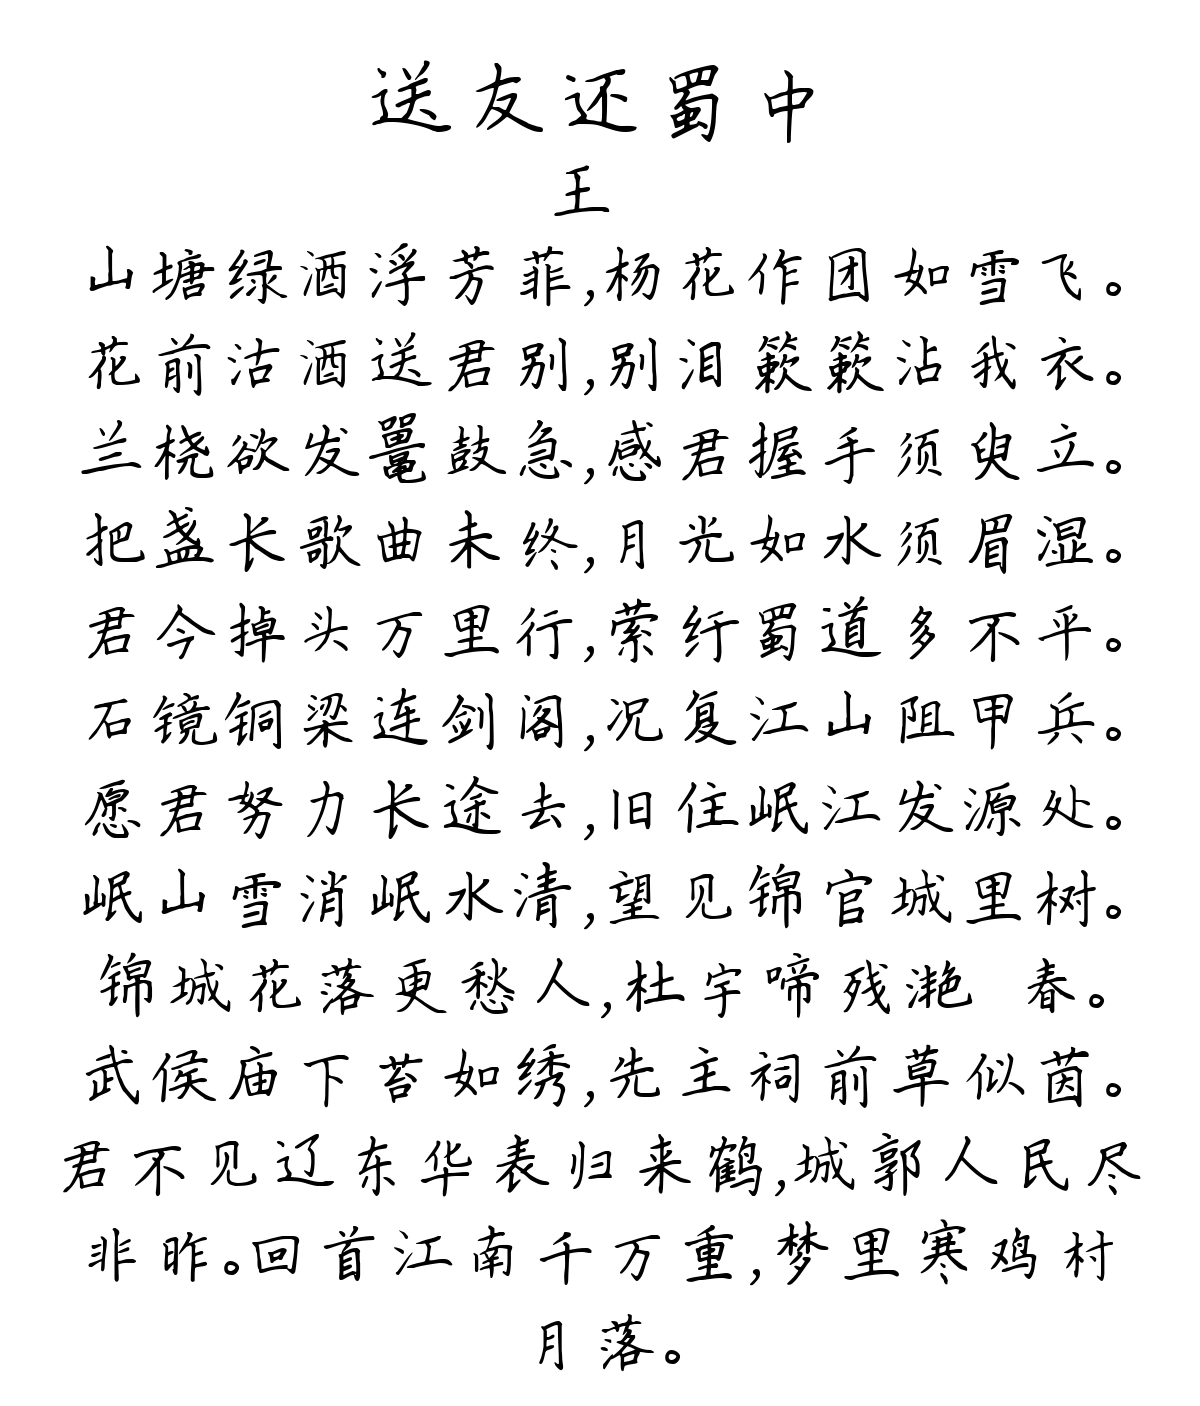 送友还蜀中
王
山塘绿酒浮芳菲,杨花作团如雪飞。
花前沽酒送君别,别泪簌簌沾我衣。
兰桡欲发鼍鼓急,感君握手须臾立。
把盏长歌曲未终,月光如水须眉湿。
君今掉头万里行,萦纡蜀道多不平。
石镜铜梁连剑阁,况复江山阻甲兵。
愿君努力长途去,旧住岷江发源处。
岷山雪消岷水清,望见锦官城里树。
锦城花落更愁人,杜宇啼残滟 春。
武侯庙下苔如绣,先主祠前草似茵。
君不见辽东华表归来鹤,城郭人民尽
非昨。回首江南千万重,梦里寒鸡村
月落。